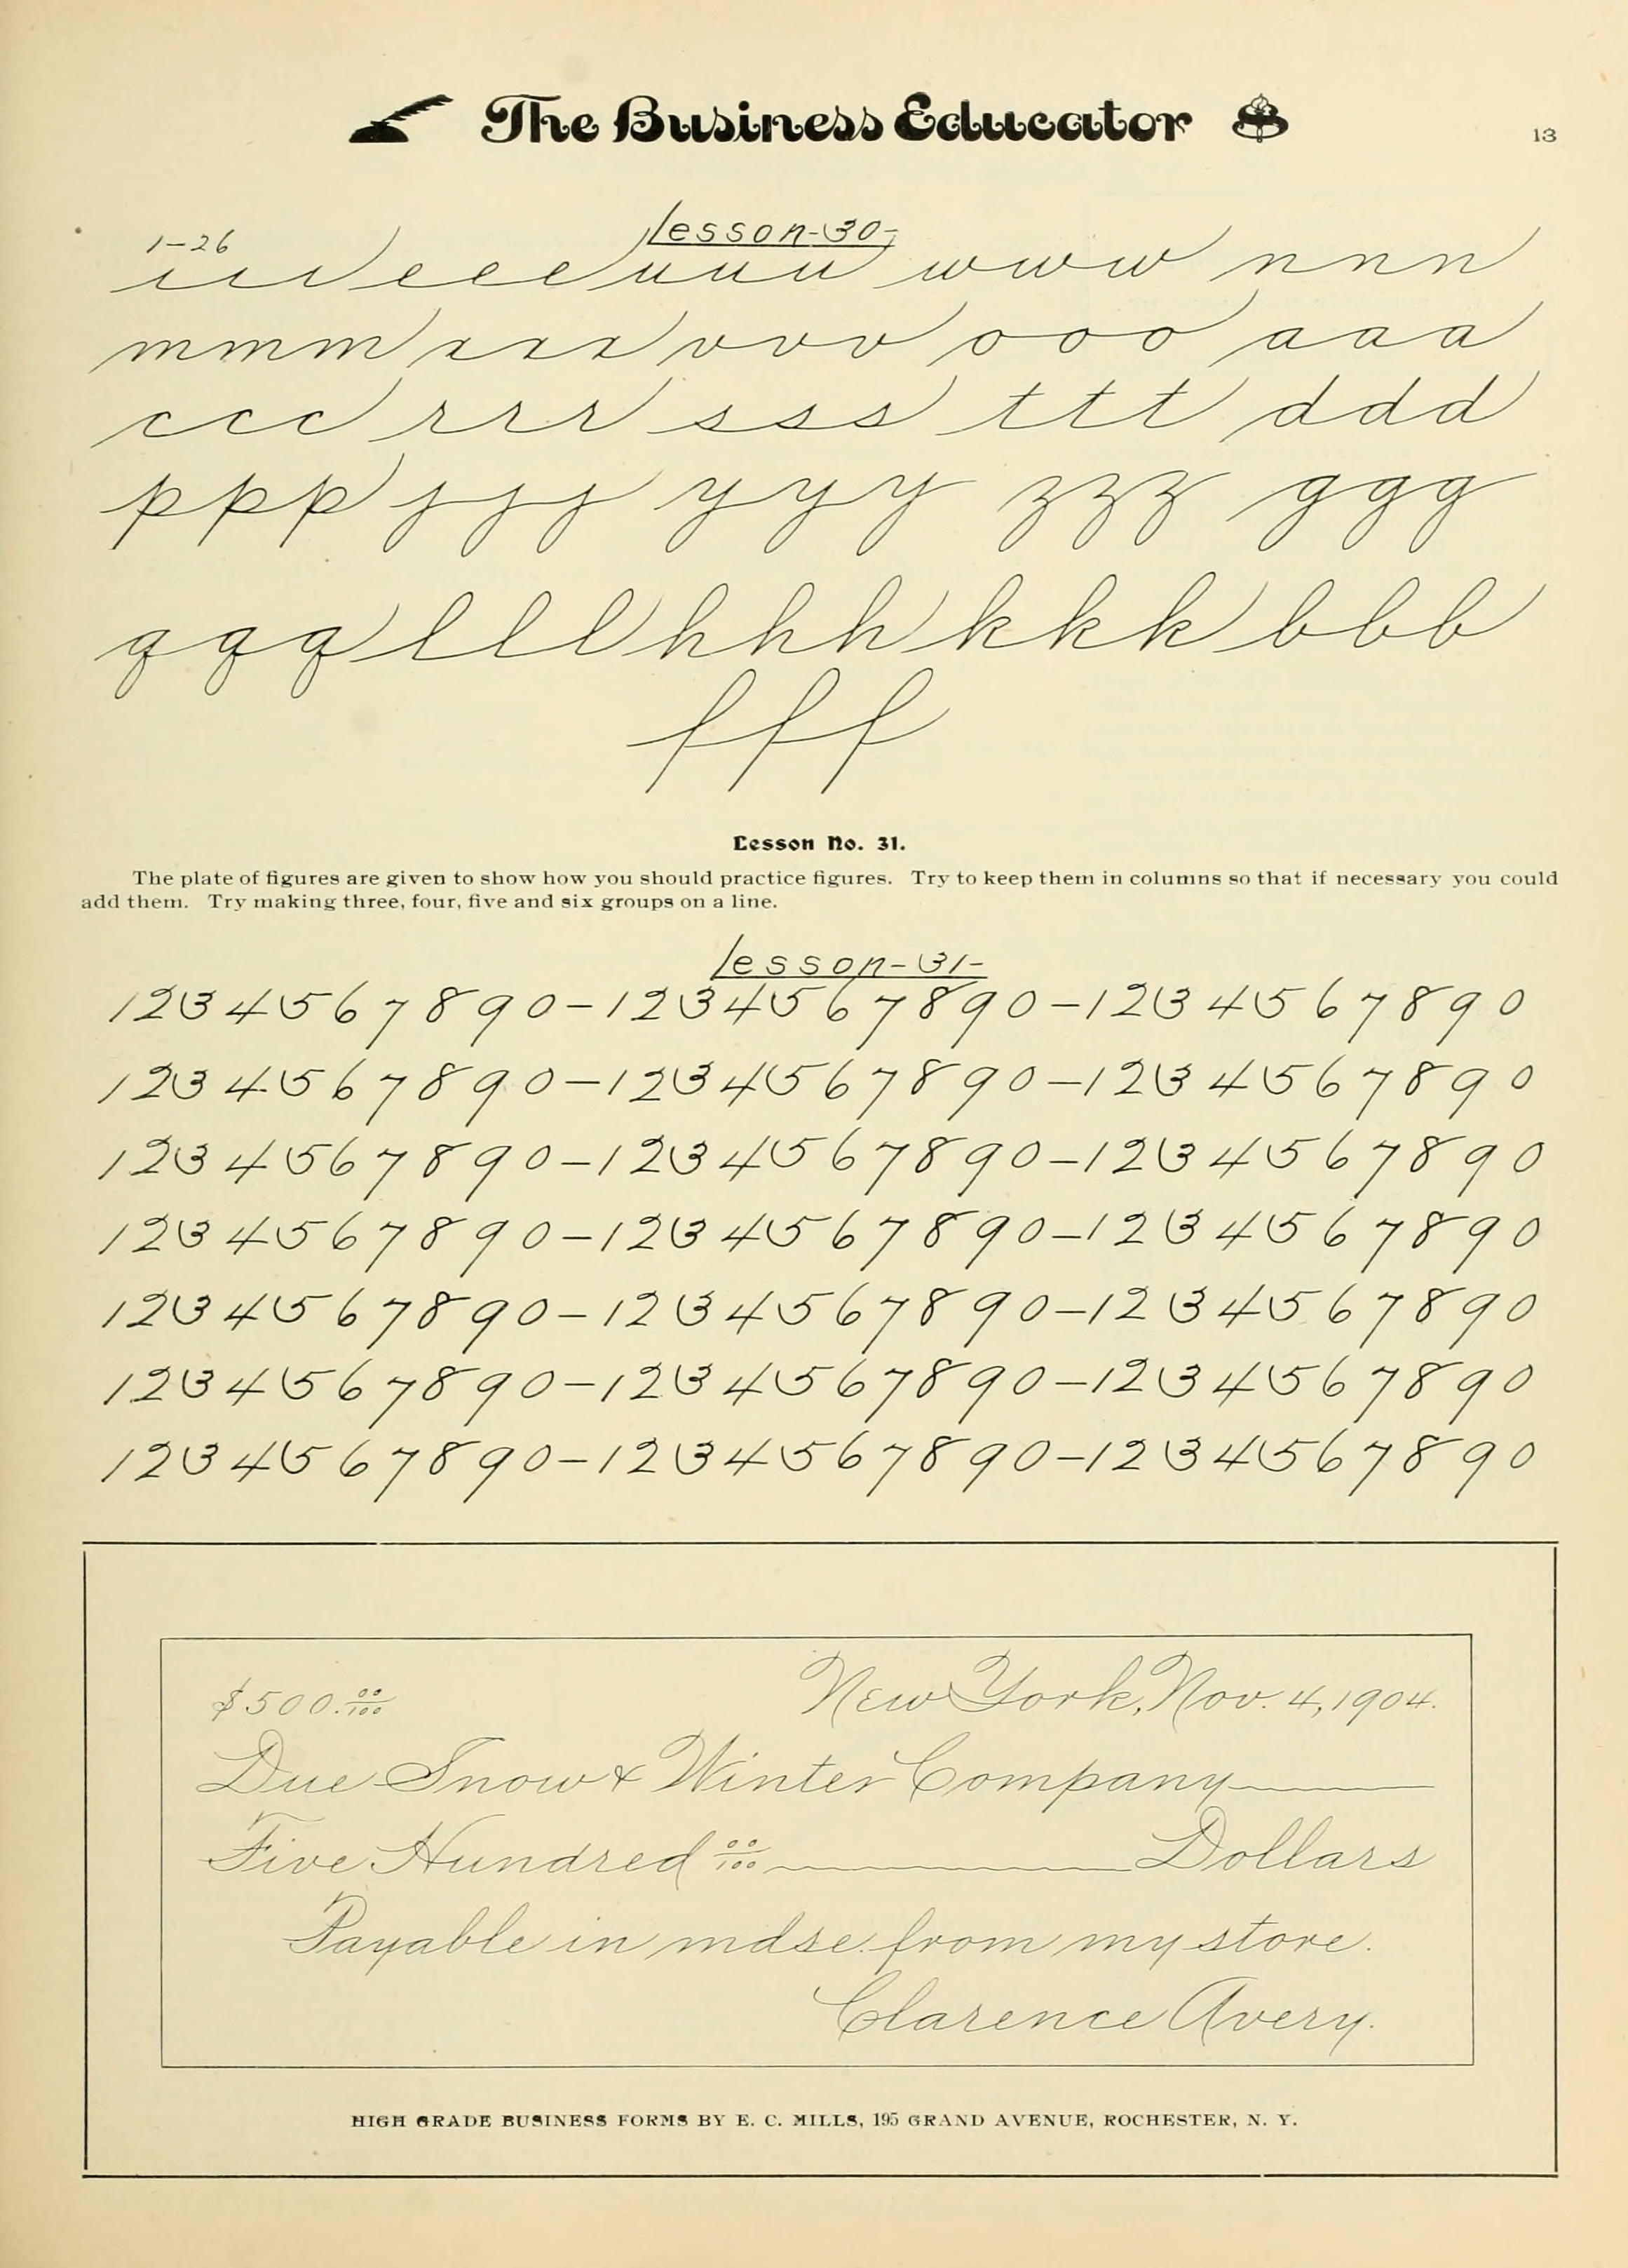 The Business Educator
13
lesson-30-
1-26
i i i e e e u u u w w w n n n
m m m x x x v v v o o o a a a
c c c r r r s s s t t t d d d
p p p j j j y y y z z z g g g
q q q l l l h h h k k k b b b
f f f
Lesson No. 31.
The plate of figures are given to show how you should practice figures. Try to keep them in columns so that if necessary you could
add them. Try making three, four, five and six groups on a line.
lesson-31-
1234567890-1234567890-1234567890
1234567890-1234567890-1234567890
1234567890-1234567890-1234567890
1234567890-1234567890-1234567890
1234567890-1234567890-1234567890
1234567890-1234567890-1234567890
1234567890-1234567890-1234567890
$500.00/100 New York, Nov. 4, 1904.
Due Snow & Winter Company
Five Hundred 00/100 Dollars
Payable in mdse. from my store.
Clarence Avery.
HIGH GRADE BUSINESS FORMS BY E. C. MILLS, 195 GRAND AVENUE, ROCHESTER, N. Y.